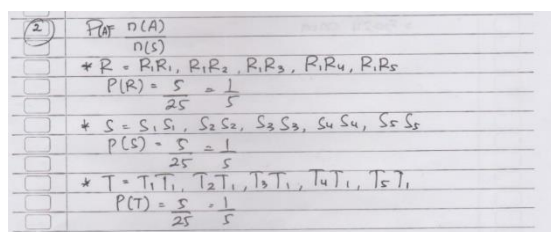 2 P(A) = n(A)
n(S)
* R = R₁R₁, R₁R₂, R₁R₃, R₁R₄, R₁R₅
P(R) = 5/25 = 1/5
* S = S₁S₁, S₂S₂, S₃S₃, S₄S₄, S₅S₅
P(S) = 5/25 = 1/5
* T = T₁T₁, T₂T₁, T₃T₁, T₄T₁, T₅T₁
P(T) = 5/25 = 1/5